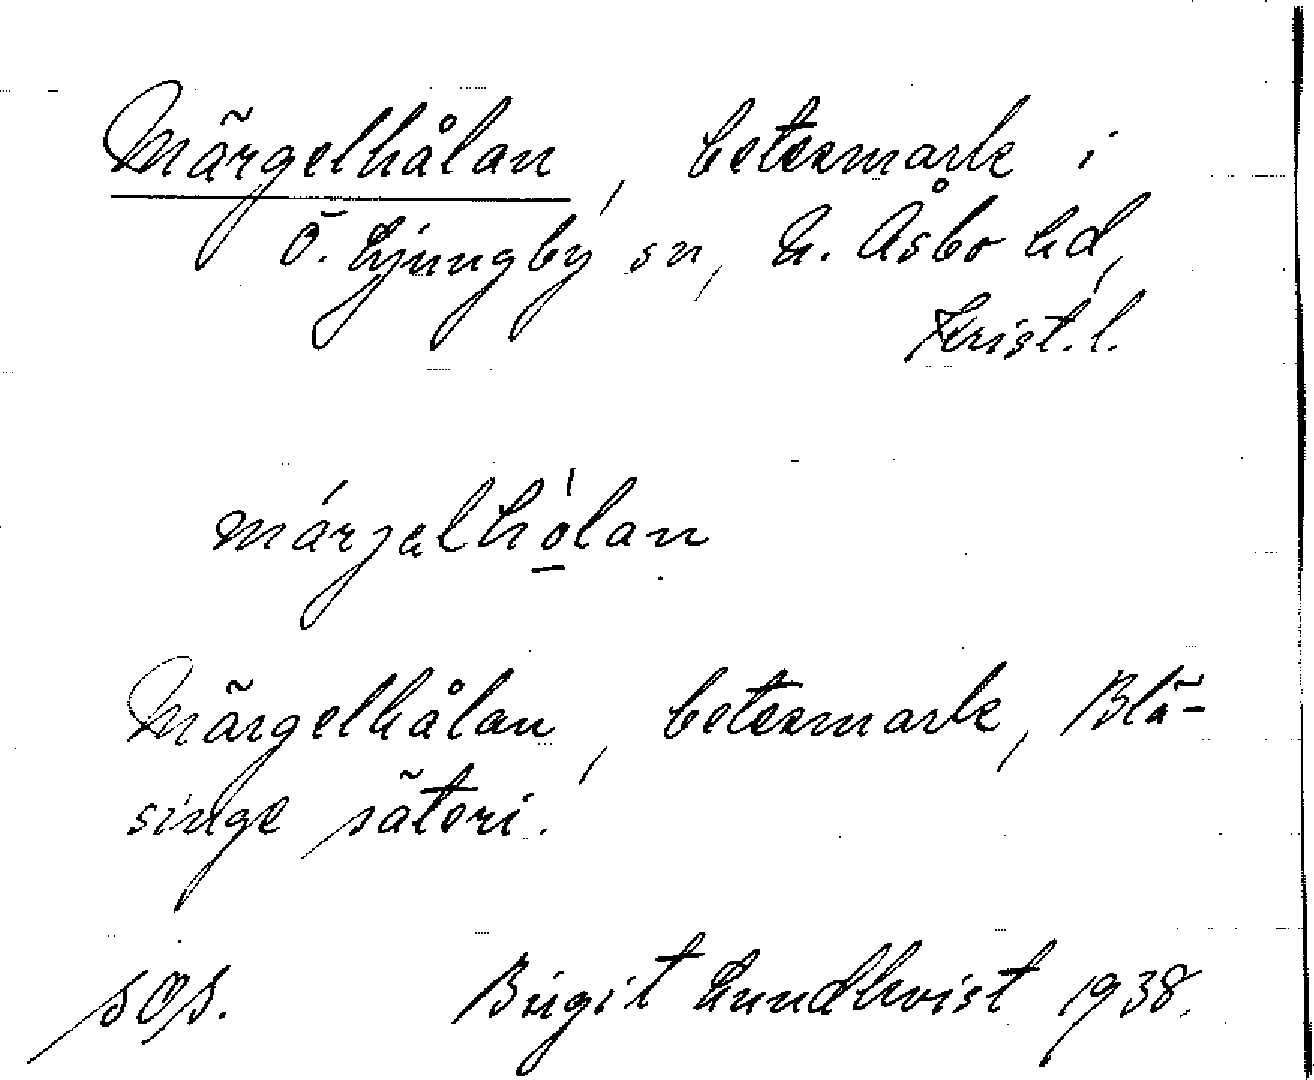 Märgelhålan, betesmark i
Ö. Ljungby sn, N. Åsbo hd,
Krist. l.
márjəlhó̱lan
Märgelhålan, betesmark, Blä-
singe säteri.
SOS. Birgit Lundkvist 1938.